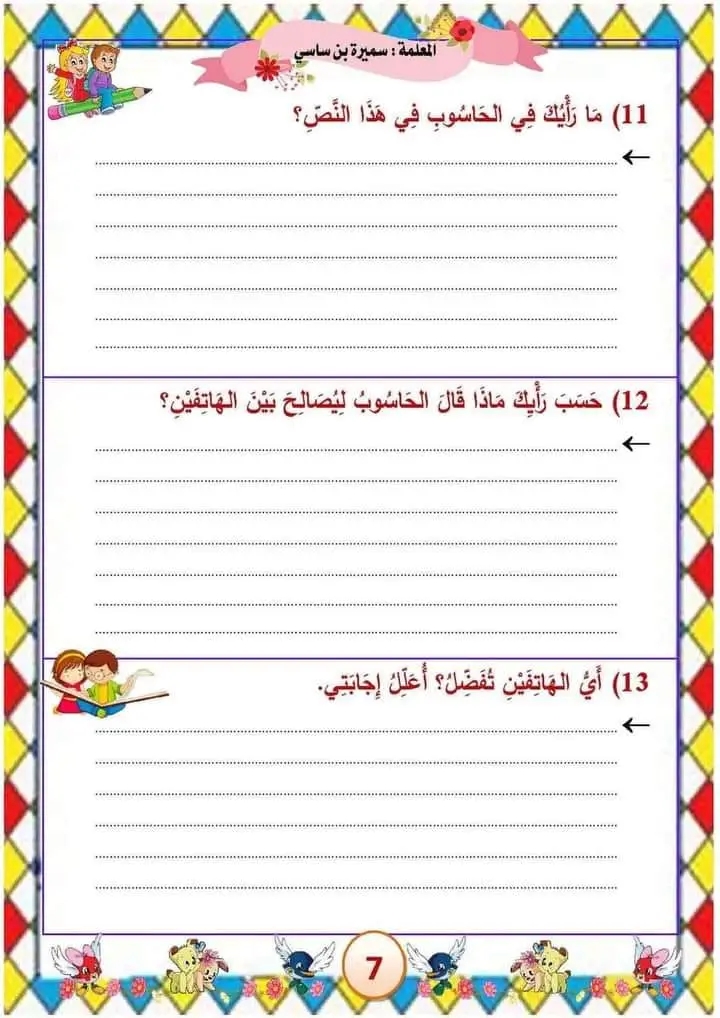 المعلمة : سميرة بن ساسي
11) مَا رَأْيُكَ فِي الحَاسُوبِ فِي هَذَا النَّصِّ؟
12) حَسَبَ رَأْيِكَ مَاذَا قَالَ الحَاسُوبُ لِيُصَالِحَ بَيْنَ الهَاتِفَيْنِ؟
13) أَيُّ الهَاتِفَيْنِ تُفَضِّلُ؟ أُعَلِّلُ إِجَابَتِي.
7